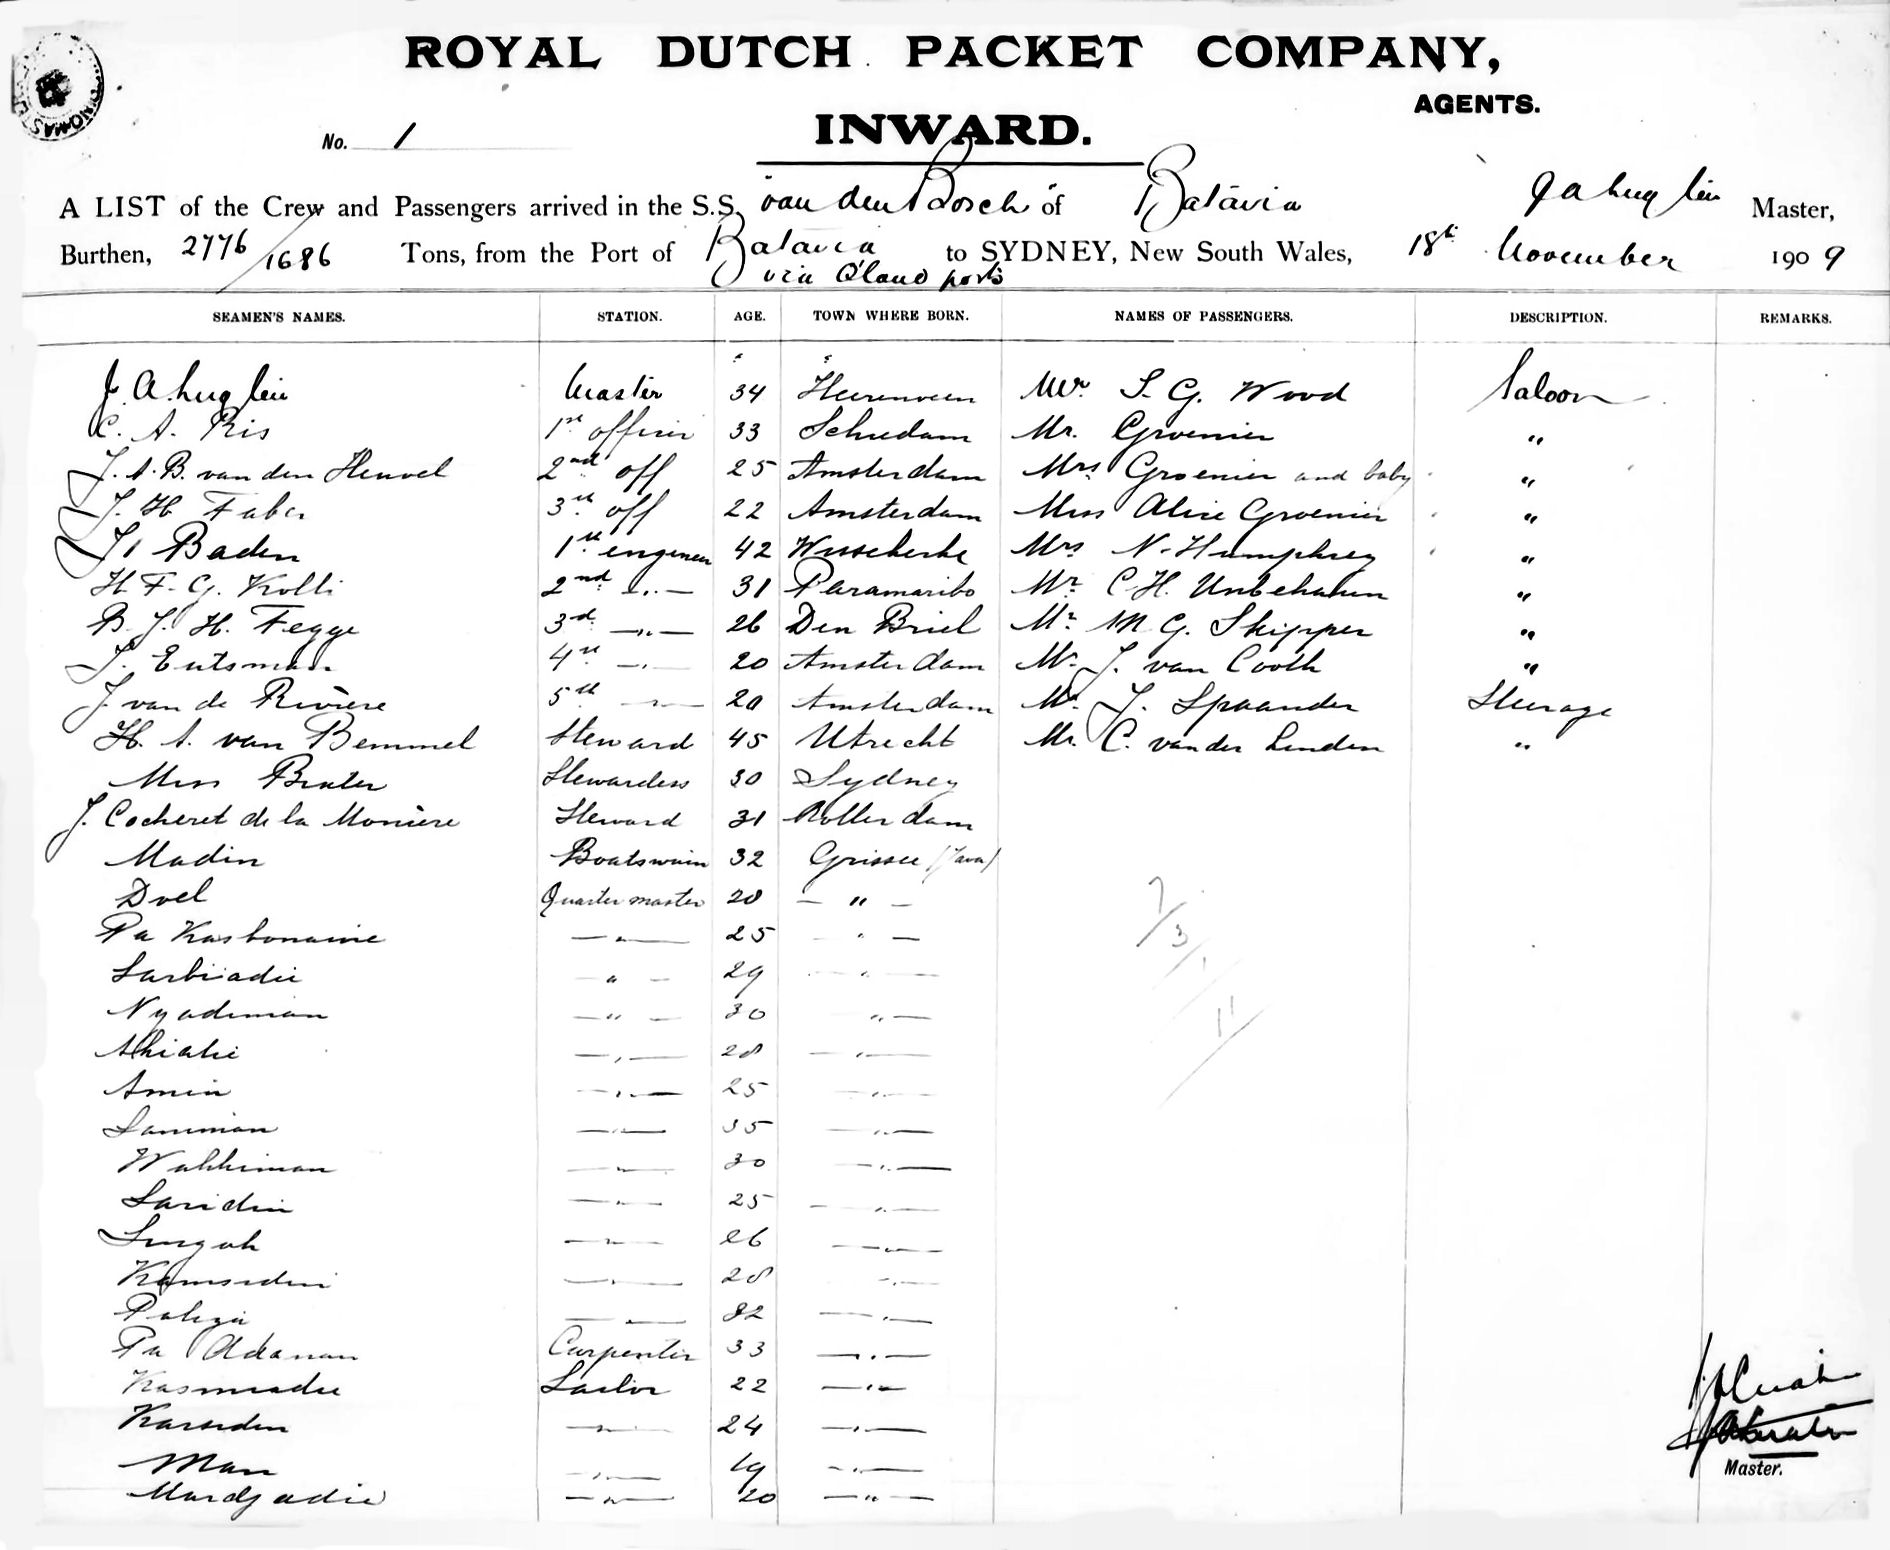 ROYAL DUTCH PACKET COMPANY,
AGENTS.
INWARD.
No. 1
A LIST of the Crew and Passengers arrived in the S.S. "van den Bosch" of Batavia Master,
Burthen, 2776/1686 Tons, from the Port of Batavia to SYDNEY, New South Wales, 18th November 1909
via Q'land ports
SEAMEN'S NAMES. STATION. AGE. TOWN WHERE BORN. NAMES OF PASSENGERS. DESCRIPTION. REMARKS.
J. A. Master 34 Heerenveen Mr. S. G. Wood Saloon
C. A. Ris 1st officer 33 Schiedam Mr. Groenier "
J. A. B. van den Heuvel 2nd off 25 Amsterdam Mrs Groenier and baby "
J. H. Faber 3rd off 22 Amsterdam Miss Alice Groenier "
Baden 1st engineer 42 Mrs N. Humphrey "
H. F. G. Kolli 2nd -"- 31 Paramaribo Mr C. H. Unbehaun "
B. J. H. Fegge 3rd -"- 26 Den Briel Mr M G. Skipper "
Eutsman 4th -"- 20 Amsterdam Mr J. van Cooth "
J. van de Rivière 5th -"- 20 Amsterdam Mr J. Spaander Steerage
H. A. van Bemmel Steward 45 Utrecht Mr. C. van der Linden "
Miss Stewardess 30 Sydney
J. Cocheret de la Monière Steward 31 Rotterdam
Madin Boatswain 32 Grissee (Java)
Doel Quartermaster 28 - " -
Pa -"- 25 - " -
Sarbiadie - " - 29 - " -
Nyadiman - " - 30 -"-
-"- 28 -"-
Amin -"- 25 -"-
Saniman -"- 35 -"-
Wakkiman -"- 30 -"-
Saridin -"- 25 -"-
Singah -"- 26 -"-
Kamsidin -"- 28 -"-
-"- 32 -"-
Pa Adanan Carpenter 33 -"-
Kasmadie Sailor 22 -"-
Karsiden -"- 24 -"-
Man -"- 19 -"-
Mardjadie -"- 20 -"-
7/3/1
11/
Master.